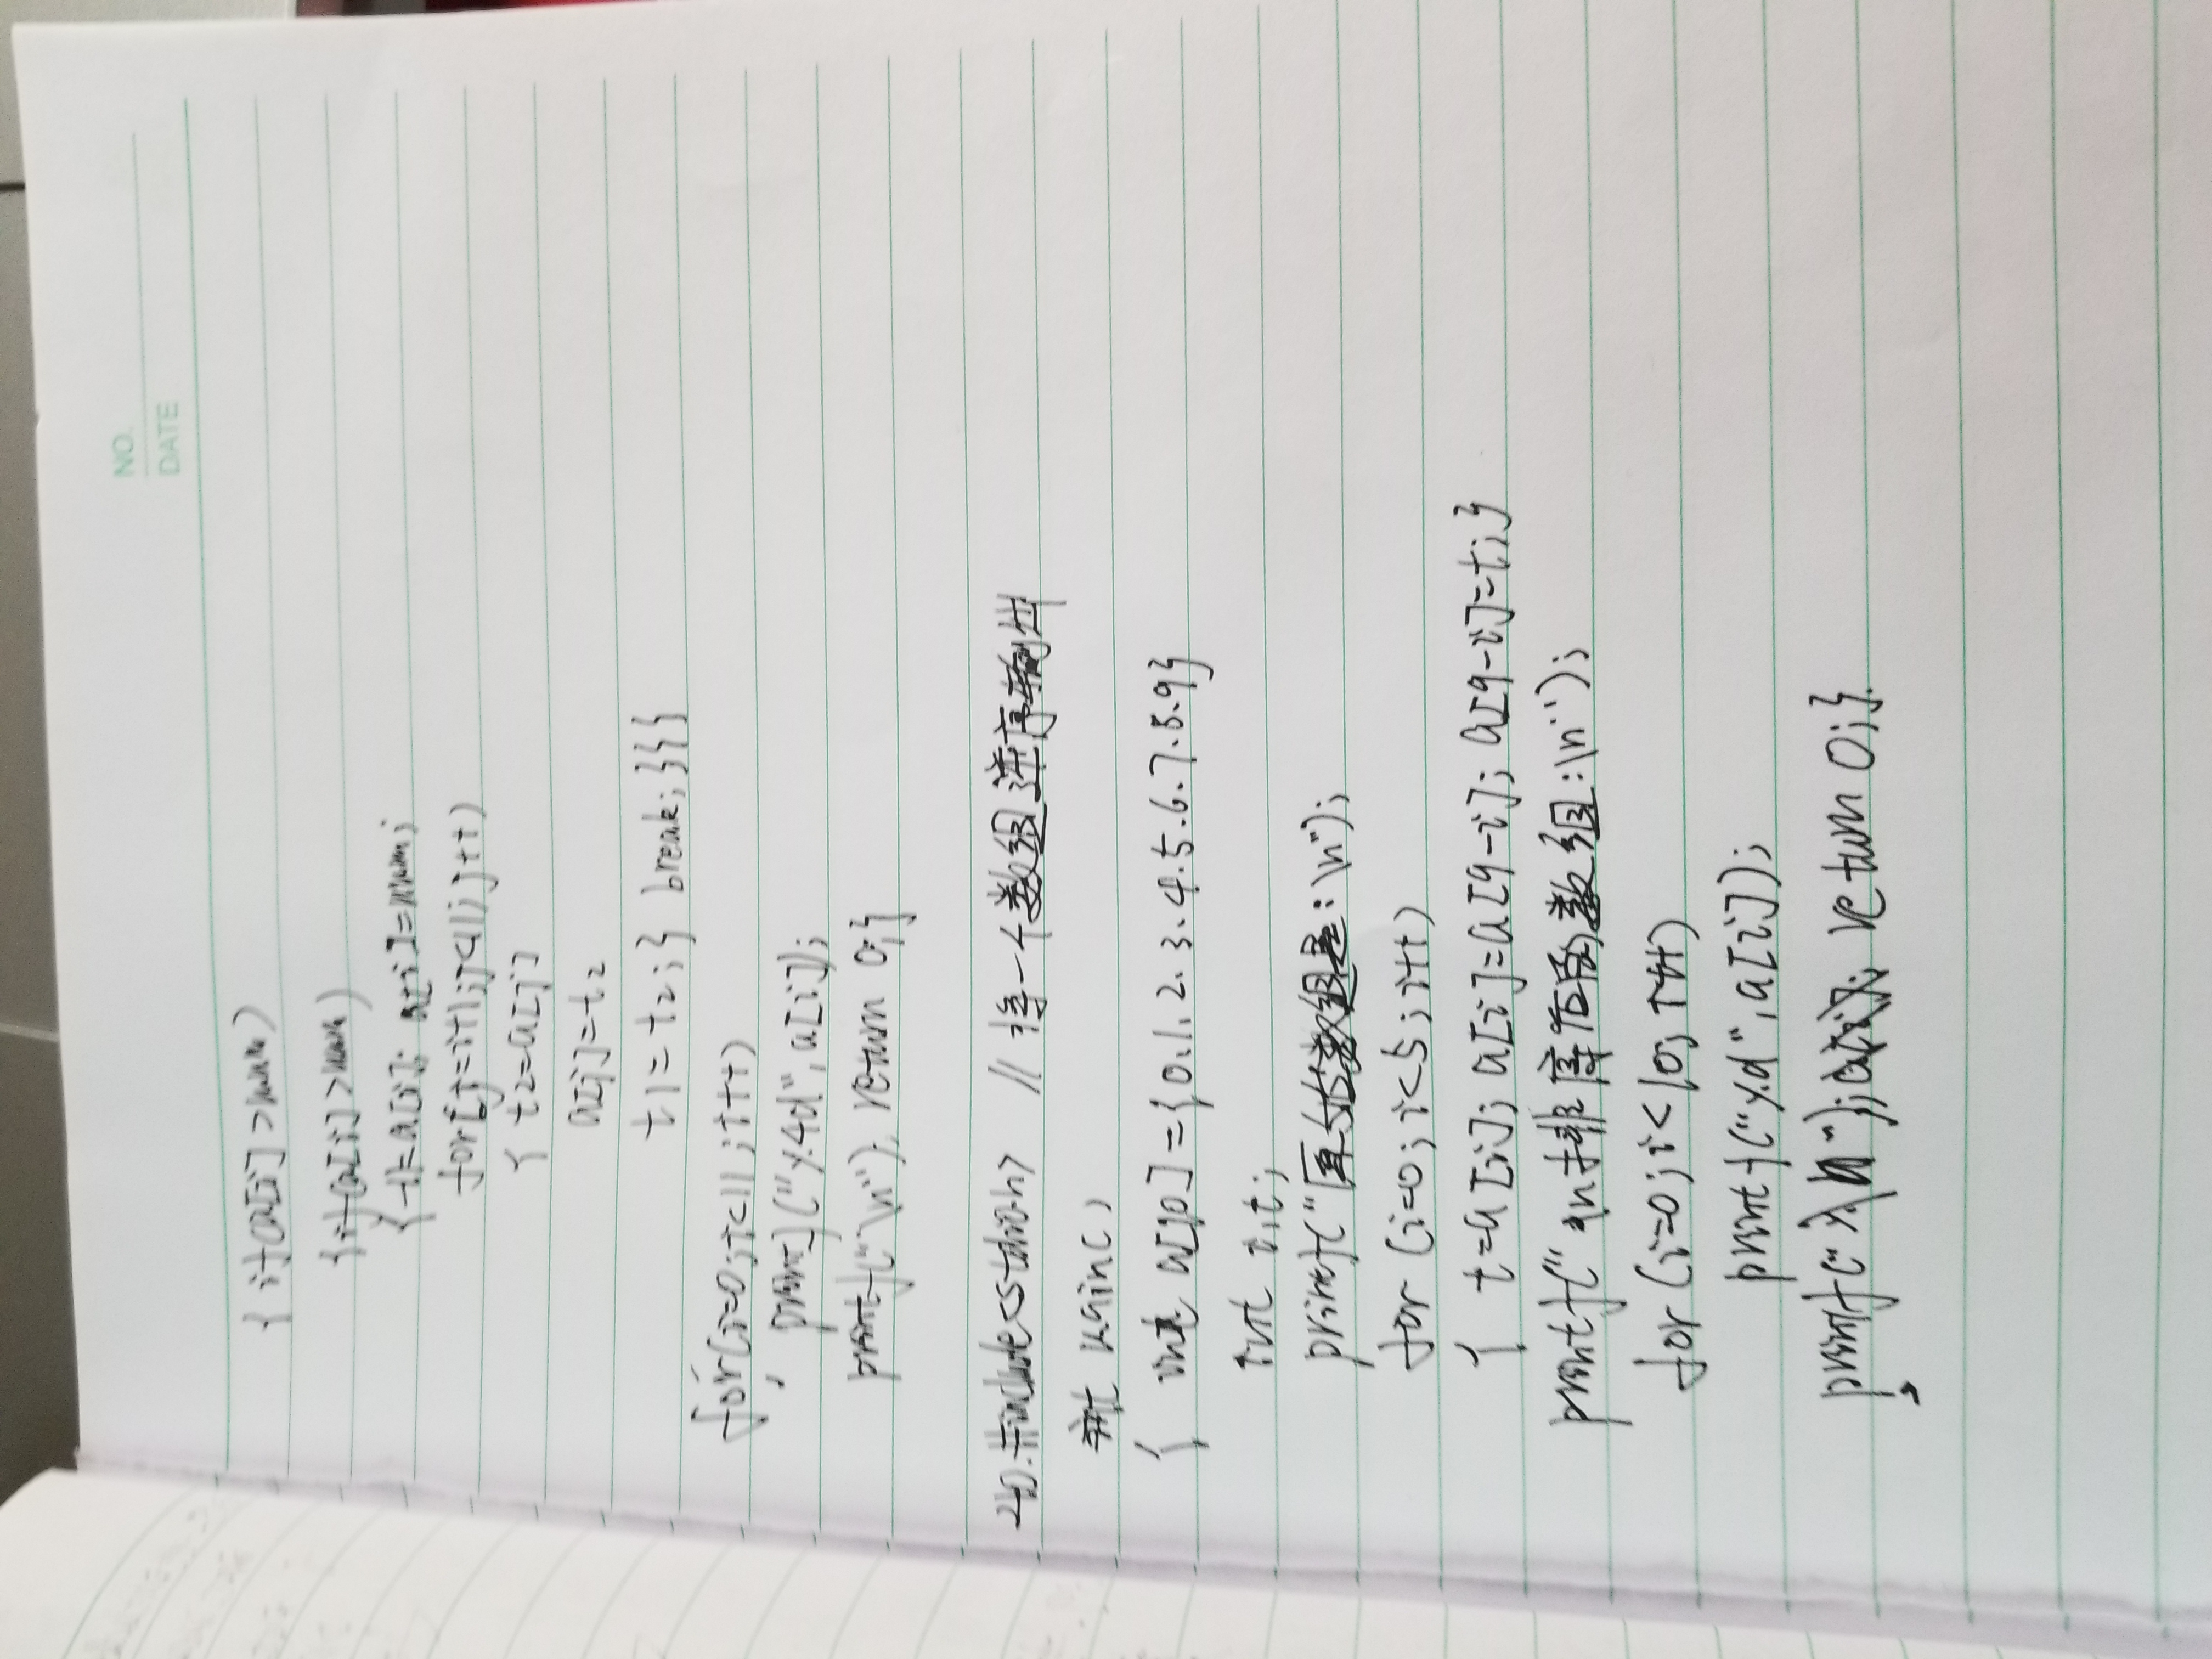 NO.
DATE
{ if(a[i]>num)
{ if(a[i]>num)
{ t1=a[i]; a[i]=num;
for(j=i+1;j<11;j++)
{ t2=a[j]
a[j]=t2
t1=t2;} break;}}}
for(i=0;i<11;i++)
printf("%4d",a[i]);
printf("\n"); return 0;}
40.#include<stdio.h> // 将一个数组逆序输出
int main()
{ int a[10]={0.1.2.3.4.5.6.7.8.9}
int i,t;
printf("原始数组是:\n");
for (i=0;i<5;i++)
{ t=a[i]; a[i]=a[9-i]; a[9-i]=t;}
printf(" 排序后数组:\n");
for (i=0;i<10;i++)
printf("%d",a[i]);
printf("\n"); return 0;}